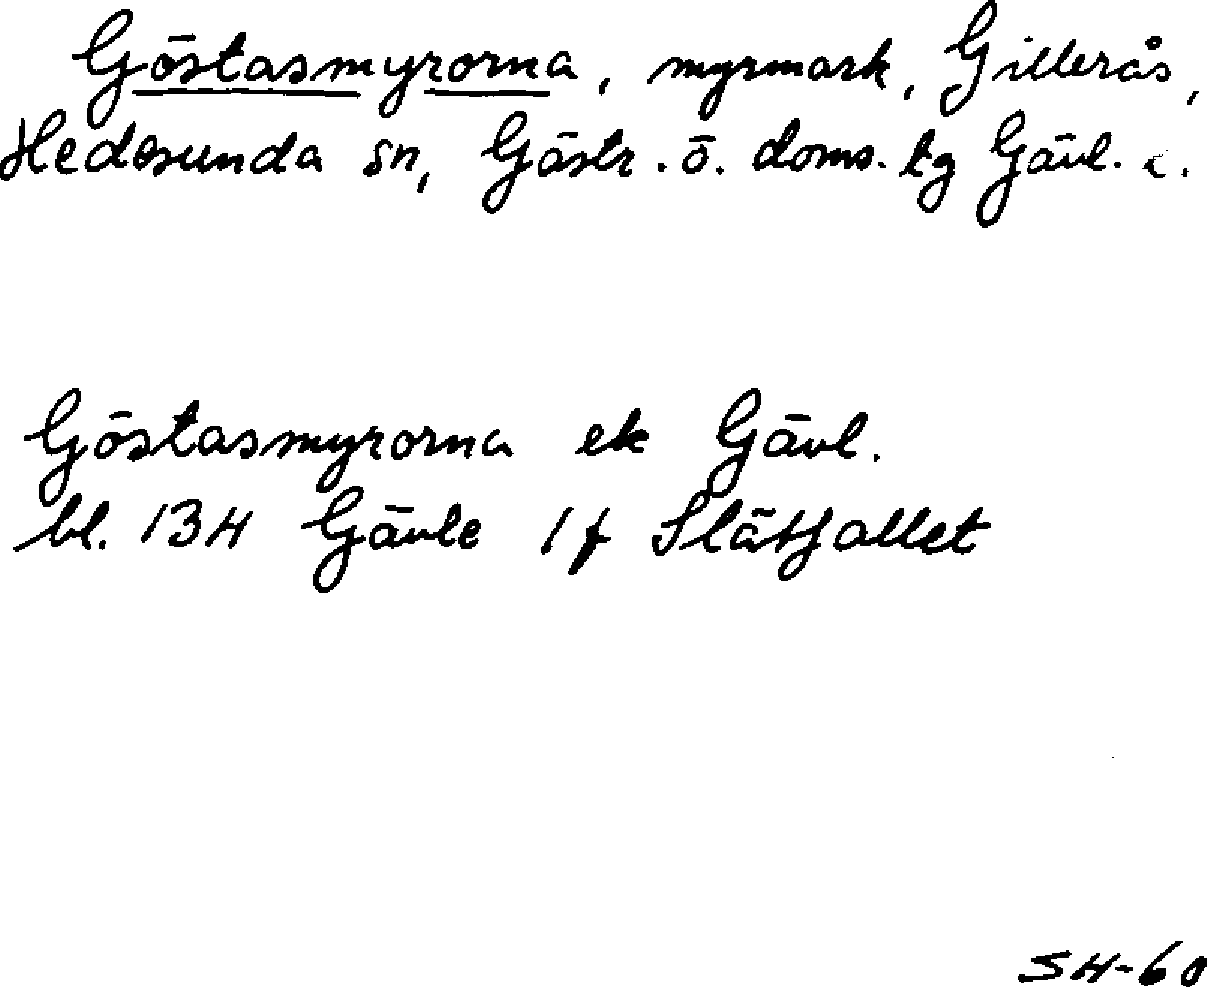 Göstasmyrorna, myrmark, Gillerås,
Hedesunda sn, Gästr. ö. doms. tg Gävl. l.
Göstasmyrorna ek Gävl.
bl. 134 Gävle 1f Slätfallet
SH-60